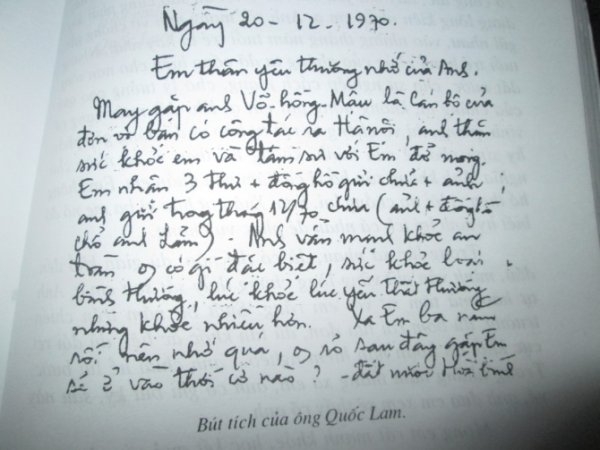 Ngày 20 - 12 - 1970.
Em thân yêu thương nhớ của Anh.
May gặp anh Võ-hồng-Mâu là cán bộ của
đơn vị bạn có công tác ra Hà nội, anh thăm
sức khỏe em và tâm sự với Em đỡ mong.
Em nhận 3 thư + đồng hồ gửi chưa + ảnh,
anh gửi trong tháng 12/70 chưa (ảnh + đồng hồ
chỗ anh Lẫm) - Anh vẫn mạnh khỏe an
toàn có gì đặc biệt, sức khỏe loại
bình thường, lúc khỏe lúc yếu thất thường
nhưng khỏe nhiều hơn. Xa Em ba năm
rồi nên nhớ quá, rõ sau đây gặp Em
sẽ ở vào thời cơ nào? - đất mười bình
Bút tích của ông Quốc Lam.